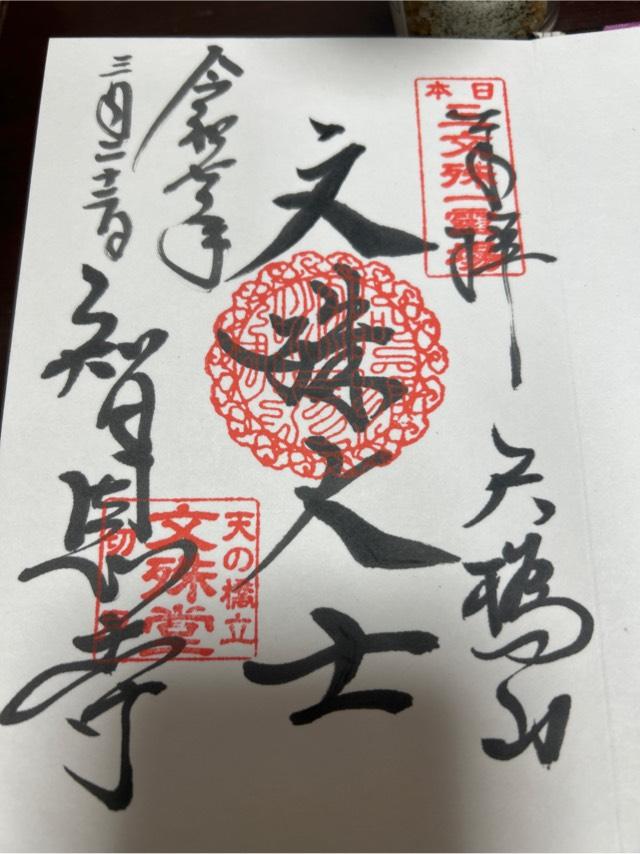 日本
三文殊一霊場
奉拝
天橋山
文殊大士
令和七年
三月二十日
智恩寺
天の橋立
文殊堂